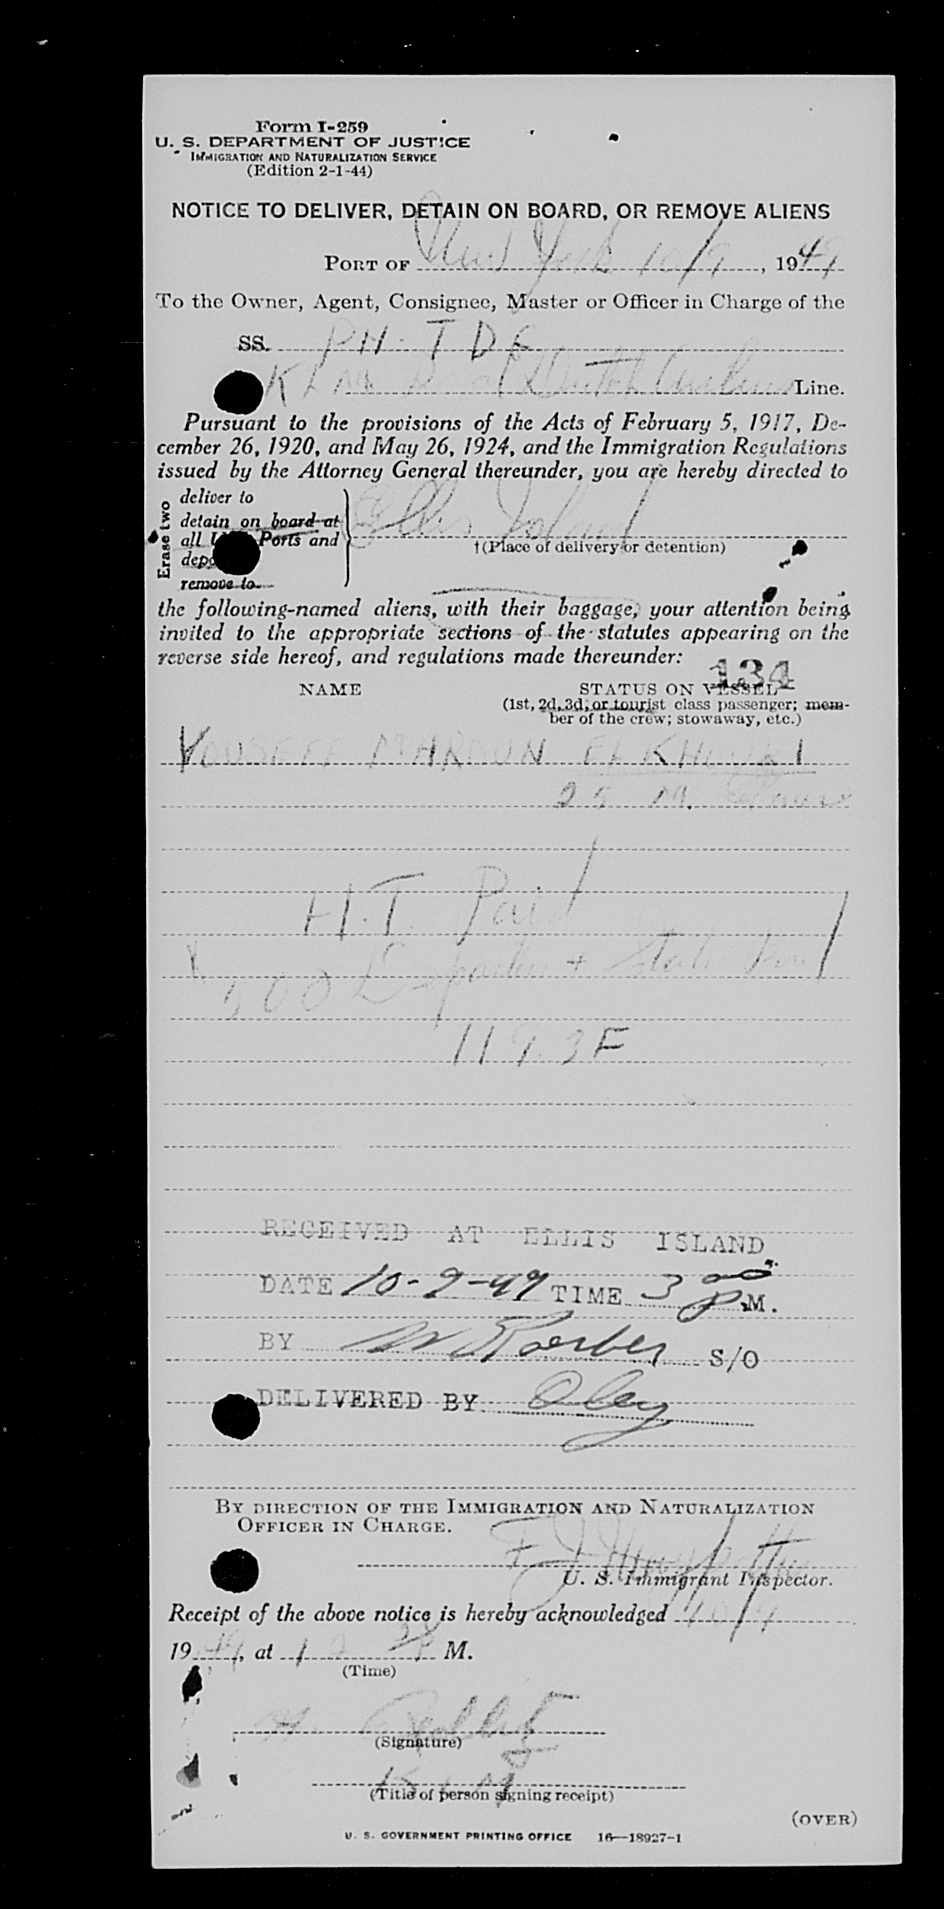 Form I-259
U. S. DEPARTMENT OF JUSTICE
IMMIGRATION AND NATURALIZATION SERVICE
(Edition 2-1-44)
NOTICE TO DELIVER, DETAIN ON BOARD, OR REMOVE ALIENS
PORT OF New York 10/9, 1949
To the Owner, Agent, Consignee, Master or Officer in Charge of the
SS. PH. TDE
KLM Royal Dutch Airlines Line.
Pursuant to the provisions of the Acts of February 5, 1917, De-
cember 26, 1920, and May 26, 1924, and the Immigration Regulations
issued by the Attorney General thereunder, you are hereby directed to
Erase two
deliver to
detain on board at
all Ports and
remove to
Ellis Island
†(Place of delivery or detention)
the following-named aliens, with their baggage, your attention being
invited to the appropriate sections of the statutes appearing on the
reverse side hereof, and regulations made thereunder:
134
NAME STATUS ON VESSEL
(1st, 2d, 3d, or tourist class passenger; mem-
ber of the crew; stowaway, etc.)
YOUSEFF MAROUN EL KHOURI
25 M.
H.T. Paid
500
119.3F
RECEIVED AT ELLIS ISLAND
DATE 10-9-49 TIME 3 00 P.M.
BY S/O
DELIVERED BY Oley
BY DIRECTION OF THE IMMIGRATION AND NATURALIZATION
OFFICER IN CHARGE.
F J
U. S. Immigrant Inspector.
Receipt of the above notice is hereby acknowledged 10/9
1949, at M.
(Time)
(Signature)
(Title of person signing receipt)
(OVER)
U. S. GOVERNMENT PRINTING OFFICE 16—18927-1